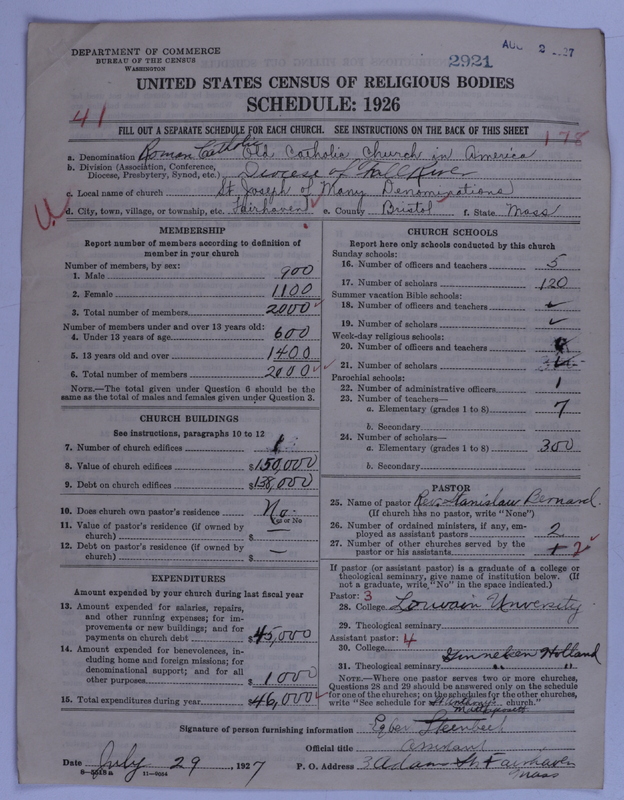 DEPARTMENT OF COMMERCE
BUREAU OF THE CENSUS
WASHINGTON
2921
AUG 2 1927
UNITED STATES CENSUS OF RELIGIOUS BODIES
SCHEDULE: 1926
41
178
FILL OUT A SEPARATE SCHEDULE FOR EACH CHURCH. SEE INSTRUCTIONS ON THE BACK OF THIS SHEET
a. Denomination Roman Catholic Old Catholic Church in America
b. Division (Association, Conference, Diocese, Presbytery, Synod, etc.) Diocese of Fall River
c. Local name of church St Joseph of Many Denominations
d. City, town, village, or township, etc. Fairhaven e. County Bristol f. State Mass
MEMBERSHIP
Report number of members according to definition of member in your church
Number of members, by sex:
1. Male 900
2. Female 1100
3. Total number of members 2000
Number of members under and over 13 years old:
4. Under 13 years of age 600
5. 13 years old and over 1400
6. Total number of members 2000
NOTE.—The total given under Question 6 should be the same as the total of males and females given under Question 3.
CHURCH BUILDINGS
See instructions, paragraphs 10 to 12
7. Number of church edifices 1
8. Value of church edifices $150,000
9. Debt on church edifices $138,000
10. Does church own pastor's residence No
Yes or No
11. Value of pastor's residence (if owned by church) $ —
12. Debt on pastor's residence (if owned by church) $ —
EXPENDITURES
Amount expended by your church during last fiscal year
13. Amount expended for salaries, repairs, and other running expenses; for improvements or new buildings; and for payments on church debt $45,000
14. Amount expended for benevolences, including home and foreign missions; for denominational support; and for all other purposes $1000
15. Total expenditures during year $46,000
CHURCH SCHOOLS
Report here only schools conducted by this church
Sunday schools:
16. Number of officers and teachers 5
17. Number of scholars 120
Summer vacation Bible schools:
18. Number of officers and teachers
19. Number of scholars
Week-day religious schools:
20. Number of officers and teachers
21. Number of scholars
Parochial schools:
22. Number of administrative officers 1
23. Number of teachers—
a. Elementary (grades 1 to 8) 7
b. Secondary
24. Number of scholars—
a. Elementary (grades 1 to 8) 300
b. Secondary
PASTOR
25. Name of pastor Rev. Stanislaw Bernard.
(If church has no pastor, write "None")
26. Number of ordained ministers, if any, employed as assistant pastors 2
27. Number of other churches served by the pastor or his assistants 1 2
If pastor (or assistant pastor) is a graduate of a college or theological seminary, give name of institution below. (If not a graduate, write "No" in the space indicated.)
Pastor: 3
28. College Louvain University
29. Theological seminary
Assistant pastor: 4
30. College Ginneken Holland
31. Theological seminary " "
NOTE.—Where one pastor serves two or more churches, Questions 28 and 29 should be answered only on the schedule for one of the churches; on the schedules for the other churches, write "See schedule for St Anthony's Mattapoisett church."
Signature of person furnishing information
Official title Assistant
Date July 29, 1927 P. O. Address 3 Adams St. Fairhaven
Mass
8—9048a 11—9054